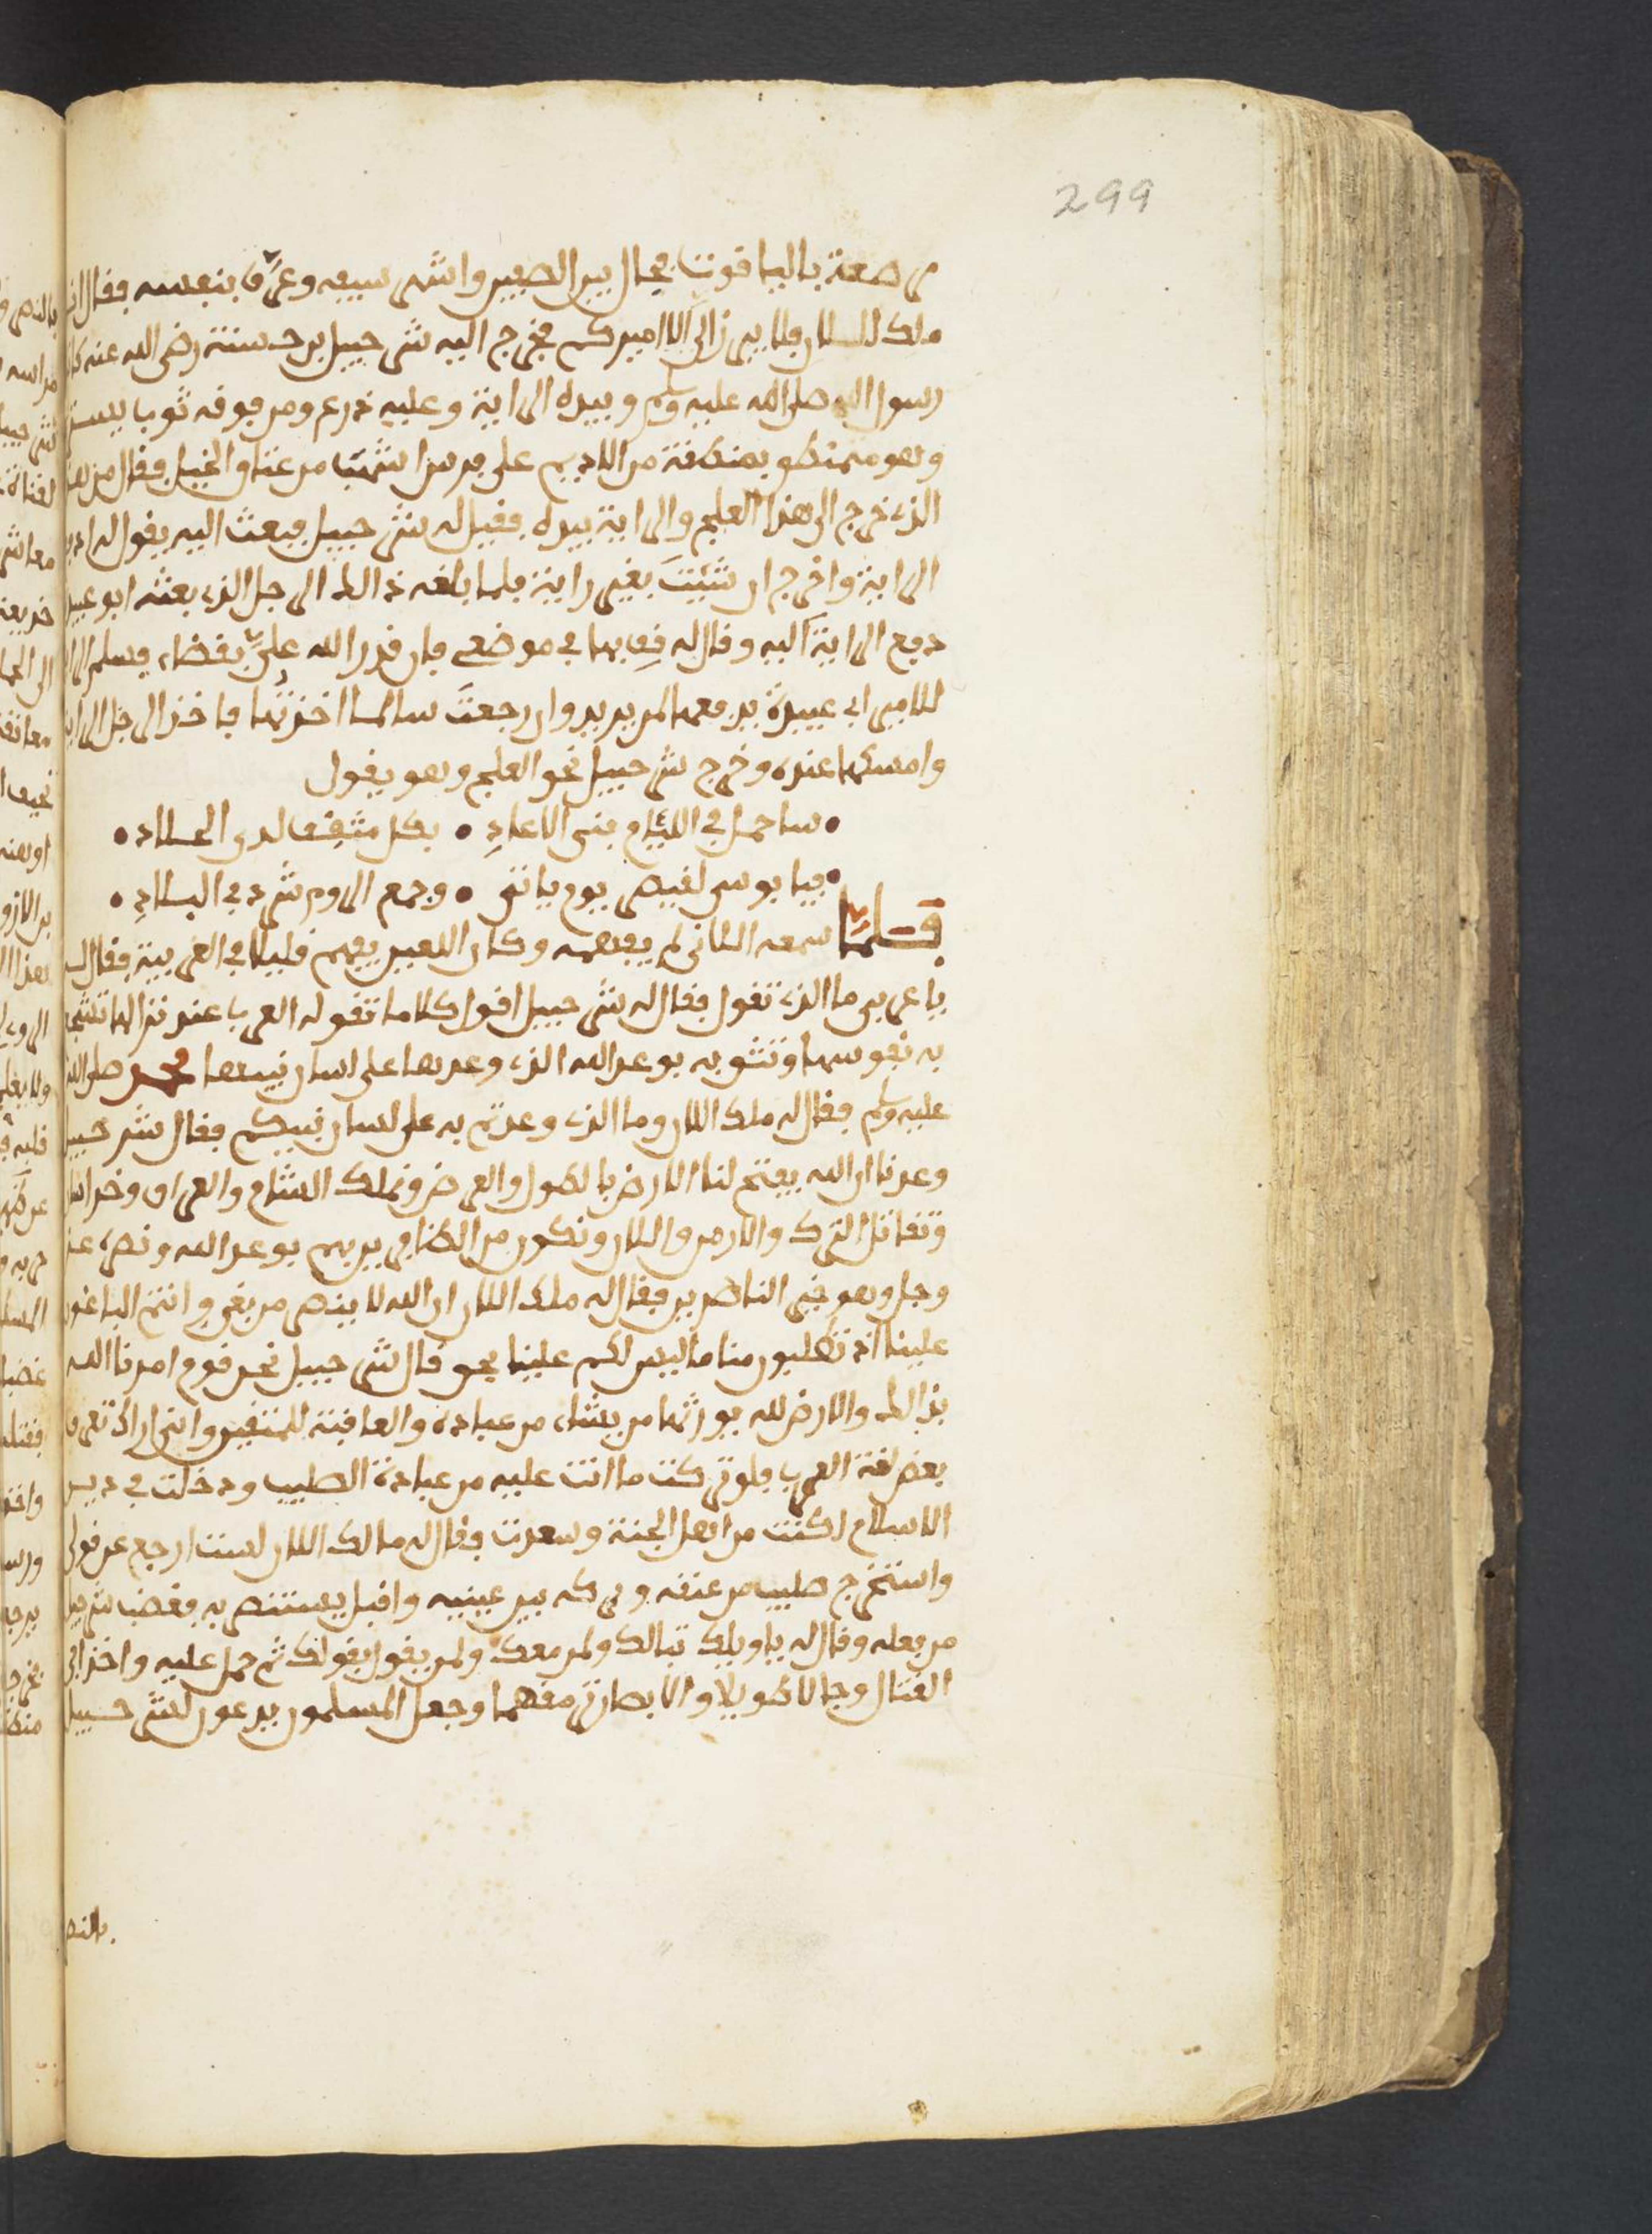 299
مرصعة بالياقوت فجال بين الصفين واشهر سيفه وعرّف بنفسه فقال انا
ملك اللان ولا يبرز الي الا اميركم فخرج اليه شرحبيل بن حسنة رضى الله عنه كاتب
رسول الله صلى الله عليه وسلم وبيده الراية وعليه درع ومن فوقه ثوب يستر
وهو متمنطق بمنطقة من الاديم على فرس اشهب من عتاق الخيل فقال من هذا
الذي خرج الى هذا العلج والراية بيده فقيل له شرحبيل فبعث اليه يقول له ادفع
الراية واخرج ان شيت بغير راية فلما بلغه ذالك الرجل الذي بعثه ابو عبيدة
دفع الراية اليه وقال له قف بها في موضعي فان قدر الله علي بقضاء فسلم الراية
للامير ابي عبيدة يدفعها لمن يريد وان رجعت سالما اخذتها فاخذ الرجل الراية
وامسكها عنده وخرج شرحبيل نحو العلج وهو يقول
• ساحمل في الليام بني الاعادِ • بكل مثقف لدى الجلاد •
• فيا بوس لقيصر يوم ياتي • وجمع الروم شرد في البلادِ •
فلما سمعه اللاني لم يفهمه وكان اللعين يفهم قليلا في العربية فقال له
يا عربي ما الذي تقول فقال له شرحبيل اقول كلاما تقوله العرب عند نزالها تشجع
به نفوسها وتثق به بوعد الله الذي وعدها على لسان نبيها محمد صلى الله
عليه وسلم فقال له ملك اللان وما الذي وعدتم به على لسان نبيكم فقال شرحبيل
وعدنا ان الله يفتح لنا الارض بالطول والعرض ونملك الشام والعراق وخراسان
ونقاتل الترك والارمن واللان ونكون من الظافرين بهم بوعد الله ونصره عز
وجل وهو خير الناصرين فقال له ملك اللان ان الله لا ينصر من بغى وانتم الباغون
علينا اذ تطلبون منا ما ليس لكم علينا بحق قال شرحبيل نحن قوم امرنا الله
بذالك والارض لله يورثها من يشاء من عباده والعاقبة للمتقين وانى اراك تعرف
بعض لغة العرب فلو تركت ما انت عليه من عبادة الصليب ودخلت في دين
الاسلام لكنت من اهل الجنة وسعدت فقال له مالك اللان لست ارجع عن قولي
واستخرج صليب من عنقه وتركه بين عينيه واقبل يستنصر به فغضب شرحبيل
من فعله وقال له يا ويلك تبا لك ولمن معك ولمن يقول بقولك ثم حمل عليه واخذا في
القتال وجالا طويلا والابصار ترمقهما وجعل المسلمون يدعون لشرحبيل
بالنصر